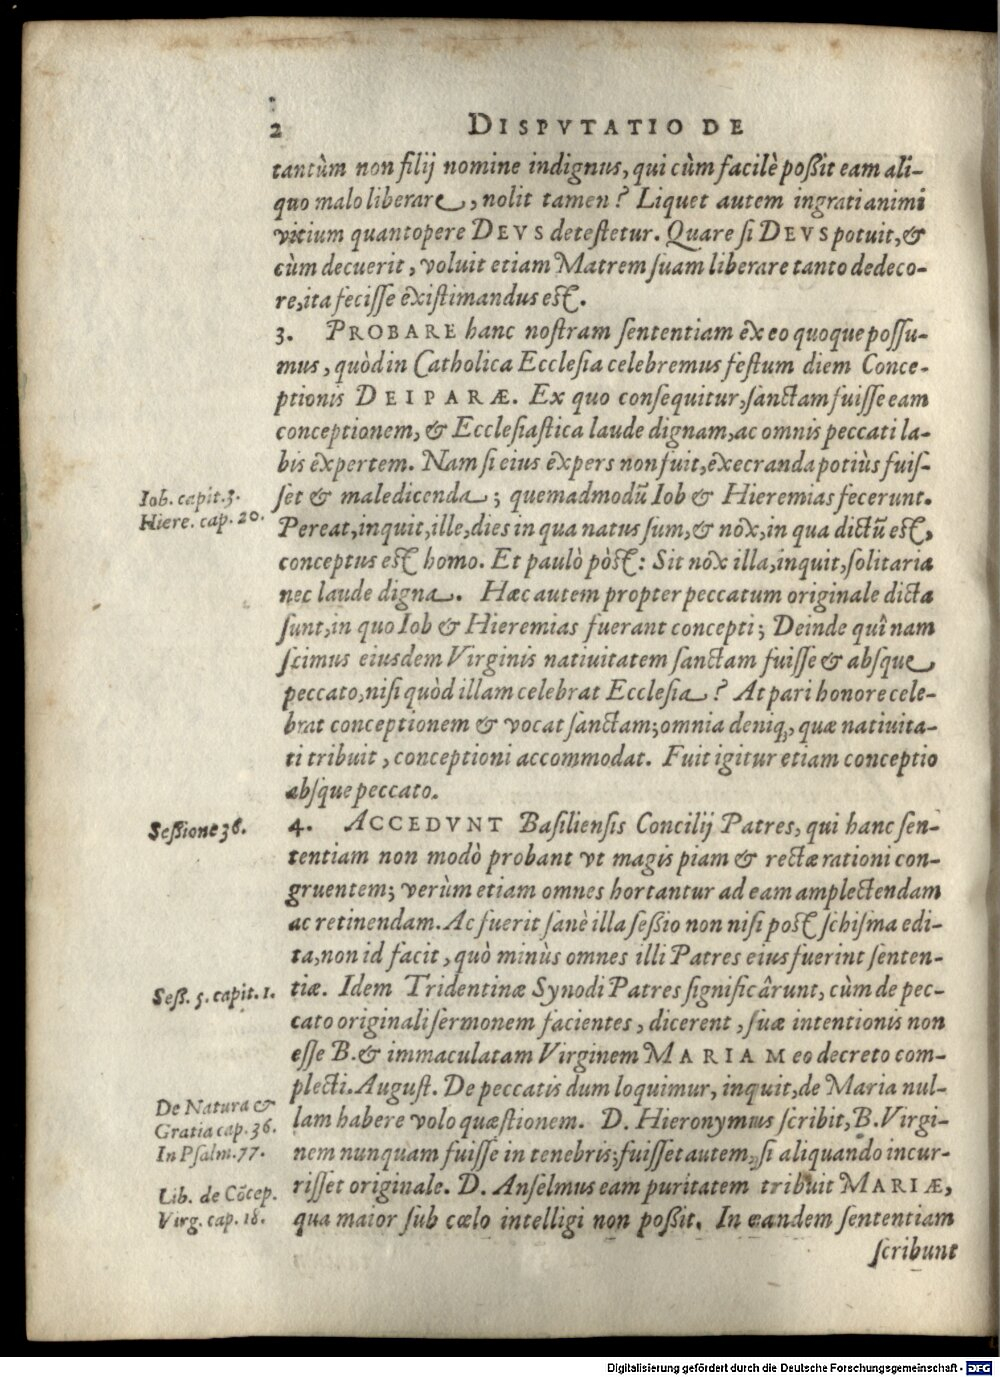 2 DISPVTATIO DE
tantùm non filij nomine indignus, qui cùm facilè poßit eam ali-
quo malo liberare, nolit tamen? Liquet autem ingrati animi
vitium quantopere DEVS detestetur. Quare si DEVS potuit, &
cùm decuerit, voluit etiam Matrem suam liberare tanto dedeco-
re, ita fecisse existimandus est.
3. PROBARE hanc nostram sententiam ex eo quoque possu-
mus, quòd in Catholica Ecclesia celebremus festum diem Conce-
ptionis DEIPARÆ. Ex quo consequitur, sanctam fuisse eam
conceptionem, & Ecclesiastica laude dignam, ac omnis peccati la-
bis expertem. Nam si eius expers non fuit, execranda potiùs fuis-
Iob. capit. 3.
set & maledicenda; quemadmodū Iob & Hieremias fecerunt.
Hiere. cap. 20.
Pereat, inquit, ille, dies in qua natus sum, & nox, in qua dictū est,
conceptus est homo. Et paulò pòst: Sit nox illa, inquit, solitaria
nec laude digna. Hæc autem propter peccatum originale dicta
sunt, in quo Iob & Hieremias fuerant concepti; Deinde quî nam
scimus eiusdem Virginis natiuitatem sanctam fuisse & absque
peccato, nisi quòd illam celebrat Ecclesia? At pari honore cele-
brat conceptionem & vocat sanctam; omnia deniq;, quæ natiuita-
ti tribuit, conceptioni accommodat. Fuit igitur etiam conceptio
absque peccato.
Seßione 36.
4. ACCEDVNT Basiliensis Concilij Patres, qui hanc sen-
tentiam non modò probant vt magis piam & rectæ rationi con-
gruentem; verùm etiam omnes hortantur ad eam amplectendam
ac retinendam. Ac fuerit sanè illa seßio non nisi post schisma edi-
ta, non id facit, quò minùs omnes illi Patres eius fuerint senten-
Seß. 5. capit. 1.
tiæ. Idem Tridentinæ Synodi Patres significârunt, cùm de pec-
cato originali sermonem facientes, dicerent, suæ intentionis non
esse B. & immaculatam Virginem MARIAM eo decreto com-
plecti. August. De peccatis dum loquimur, inquit, de Maria nul-
De Natura &
Gratia cap. 36.
lam habere volo quæstionem. D. Hieronymus scribit, B. Virgi-
In Psalm. 77.
nem nunquam fuisse in tenebris; fuisset autem, si aliquando incur-
Lib. de Cōcep.
risset originale. D. Anselmus eam puritatem tribuit MARIÆ,
Virg. cap. 18.
qua maior sub cœlo intelligi non poßit. In eandem sententiam
scribunt
Digitalisierung gefördert durch die Deutsche Forschungsgemeinschaft - DFG